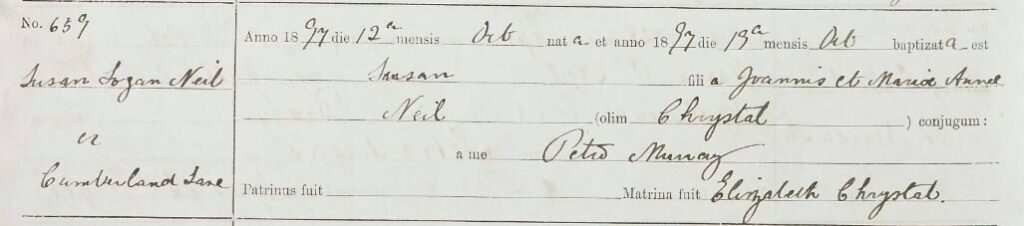 No. 659
Susan Logan Neil
Cumberland Lane
Anno 1897 die 12a mensis Oct nata et anno 1897 die 13a mensis Oct baptizata est
Susan filia Joannis et Mariæ Annæ
Neil (olim Chrystal) conjugum:
a me Petro Murray
Patrinus fuit Matrina fuit Elizabeth Chrystal.